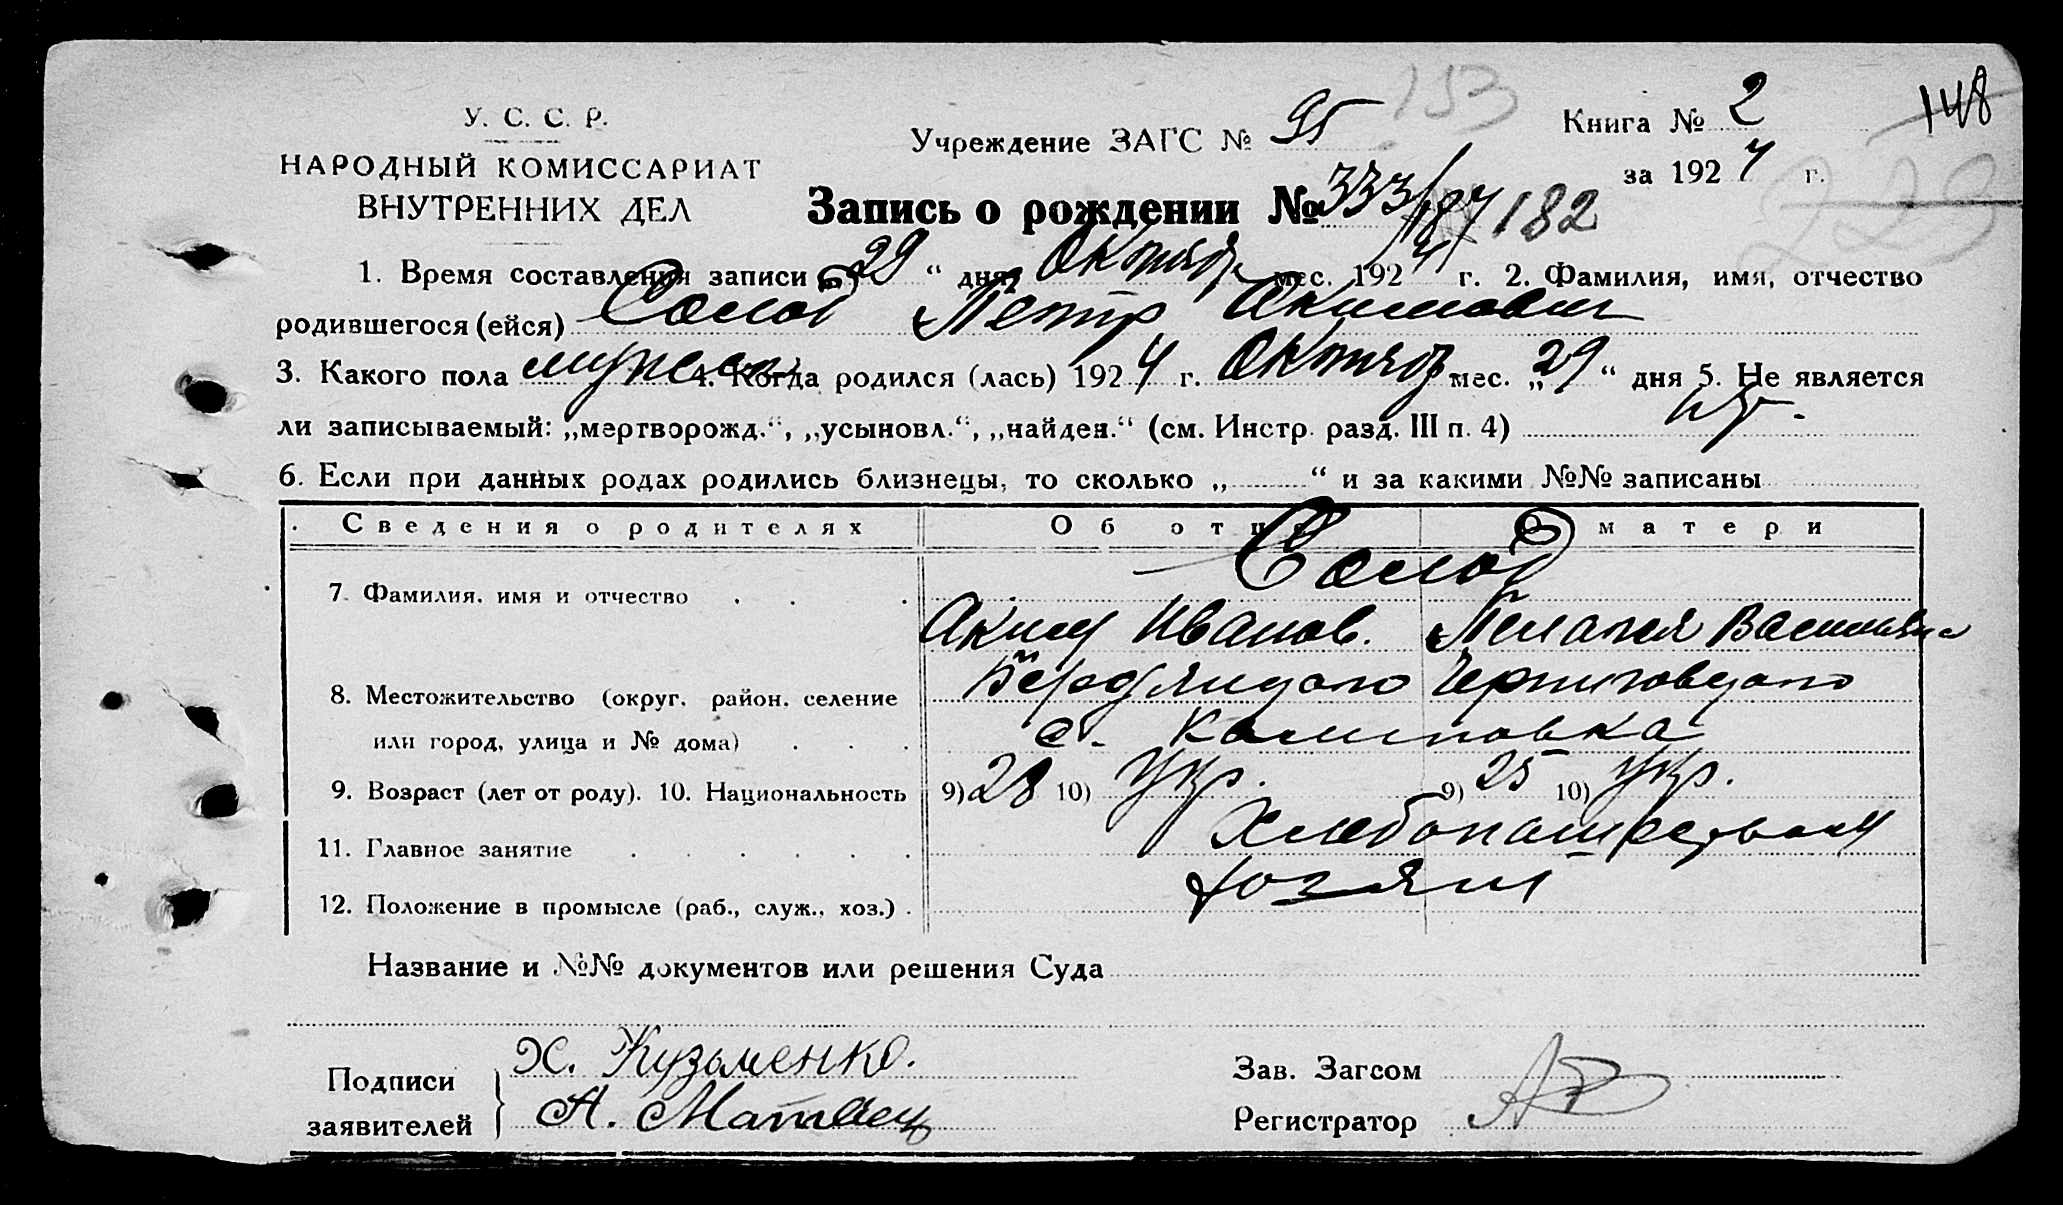 153
148
У. С. С. Р.
Учреждение ЗАГС № 95
Книга № 2
НАРОДНЫЙ КОМИССАРИАТ
за 1924 г.
ВНУТРЕННИХ ДЕЛ
Запись о рождении № 333/187 182
223
1. Время составления записи „29“ дня Октября мес. 1924 г. 2. Фамилия, имя, отчество
родившегося (ейся) Солод Петр Акимович
3. Какого пола мужеск 4. Когда родился (лась) 1924 г. Октяб мес. „29“ дня 5. Не является
ли записываемый: „мертворожд.“, „усыновл.“, „найден.“ (см. Инстр. разд. III п. 4) нет.
6. Если при данных родах родились близнецы, то сколько „ “ и за какими №№ записаны
Сведения о родителях Об отце О матери
Солод
7. Фамилия, имя и отчество
Аким Иванов. Пелагея Васильевна
8. Местожительство (округ, район, селение Бердянского Черниговского
или город, улица и № дома) с. Калиновка
9. Возраст (лет от роду). 10. Национальность 9) 28 10) Укр. 9) 25 10) укр.
11. Главное занятие Хлебопашеством
12. Положение в промысле (раб., служ., хоз.) хозяин
Название и №№ документов или решения Суда
Подписи Х. Кузьменко.
заявителей А.
Зав. Загсом
Регистратор